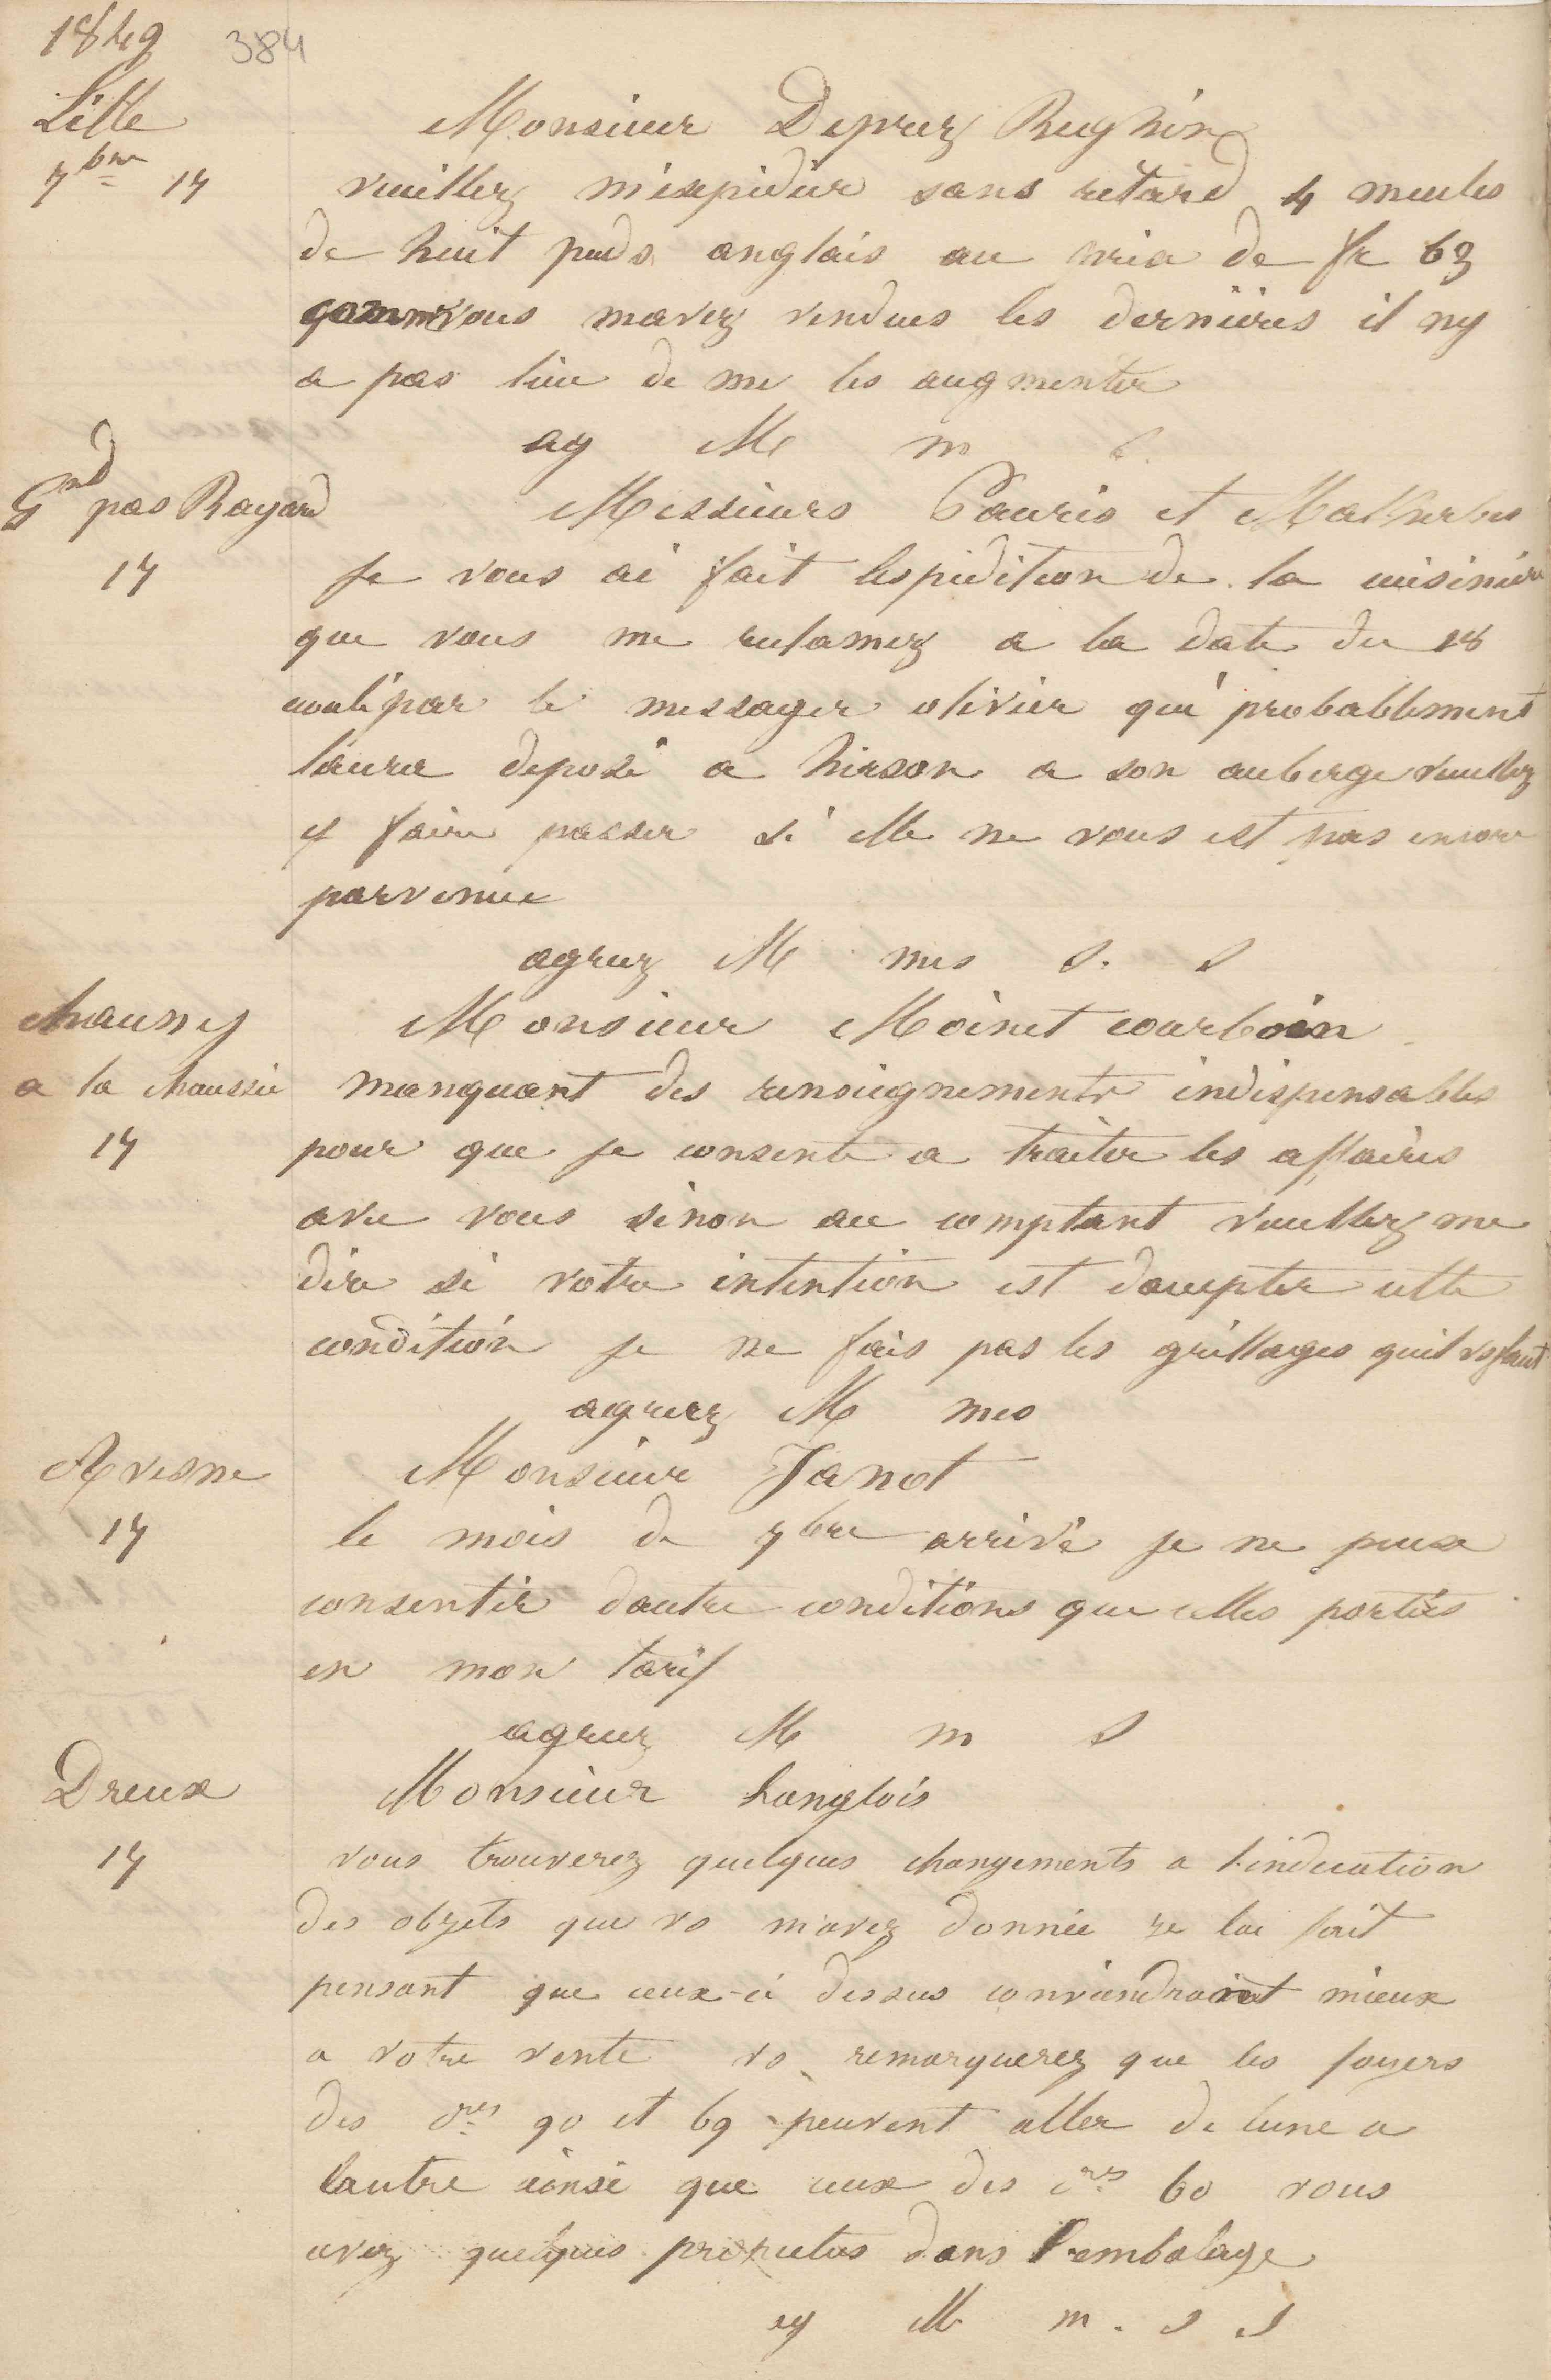 1849 384
Lille
7bre 17
Monsieur Deprez Reghin
veuillez m'expidier sans retard 4 meules
de huit pieds anglais au prix de fr 63
comme vous mavez vendues les dernières il ny
a pas lieu de me les augmenter
ag M m
Gnd pas Bayard
17
Messieurs Pauris et Malherbes
Je vous ai fait lespidition de la cuisinière
que vous me reclamez a la date du 18
coulé par le messager olivier qui probablement
laura deposé a hirson a son auberge veuillez
y faire passer si elle ne vous est pas encore
parvenue
agreez M mes S. S
chaussey
a la chaussée
17
Monsieur Moinet courboin
manquant des renseignements indispensables
pour que je consente a traiter les affaires
avec vous sinon au comptant veuillez me
dire si votre intention est daccepter cette
condition je ne fais pas les grillages quil vs faut
agreez M mes
Avesne
17
Monsieur Janot
le mois de 7bre arrivé je ne peux
consentir dautre conditions que celles portées
en mon tarif
agreez M m S
Dreux
17
Monsieur Langlois
vous trouverez quelques changements a l'indication
des objets que vs m'avez donnée je lai fait
pensant que ceux-ci dessus conviendraient mieux
a votre vente vs remarquerez que les foyers
des cres 90 et 69 peuvent aller de lune a
lautre ainsi que ceux des cres 60 vous
avez quelques prospectus dans l'embalage
ag M m. s s